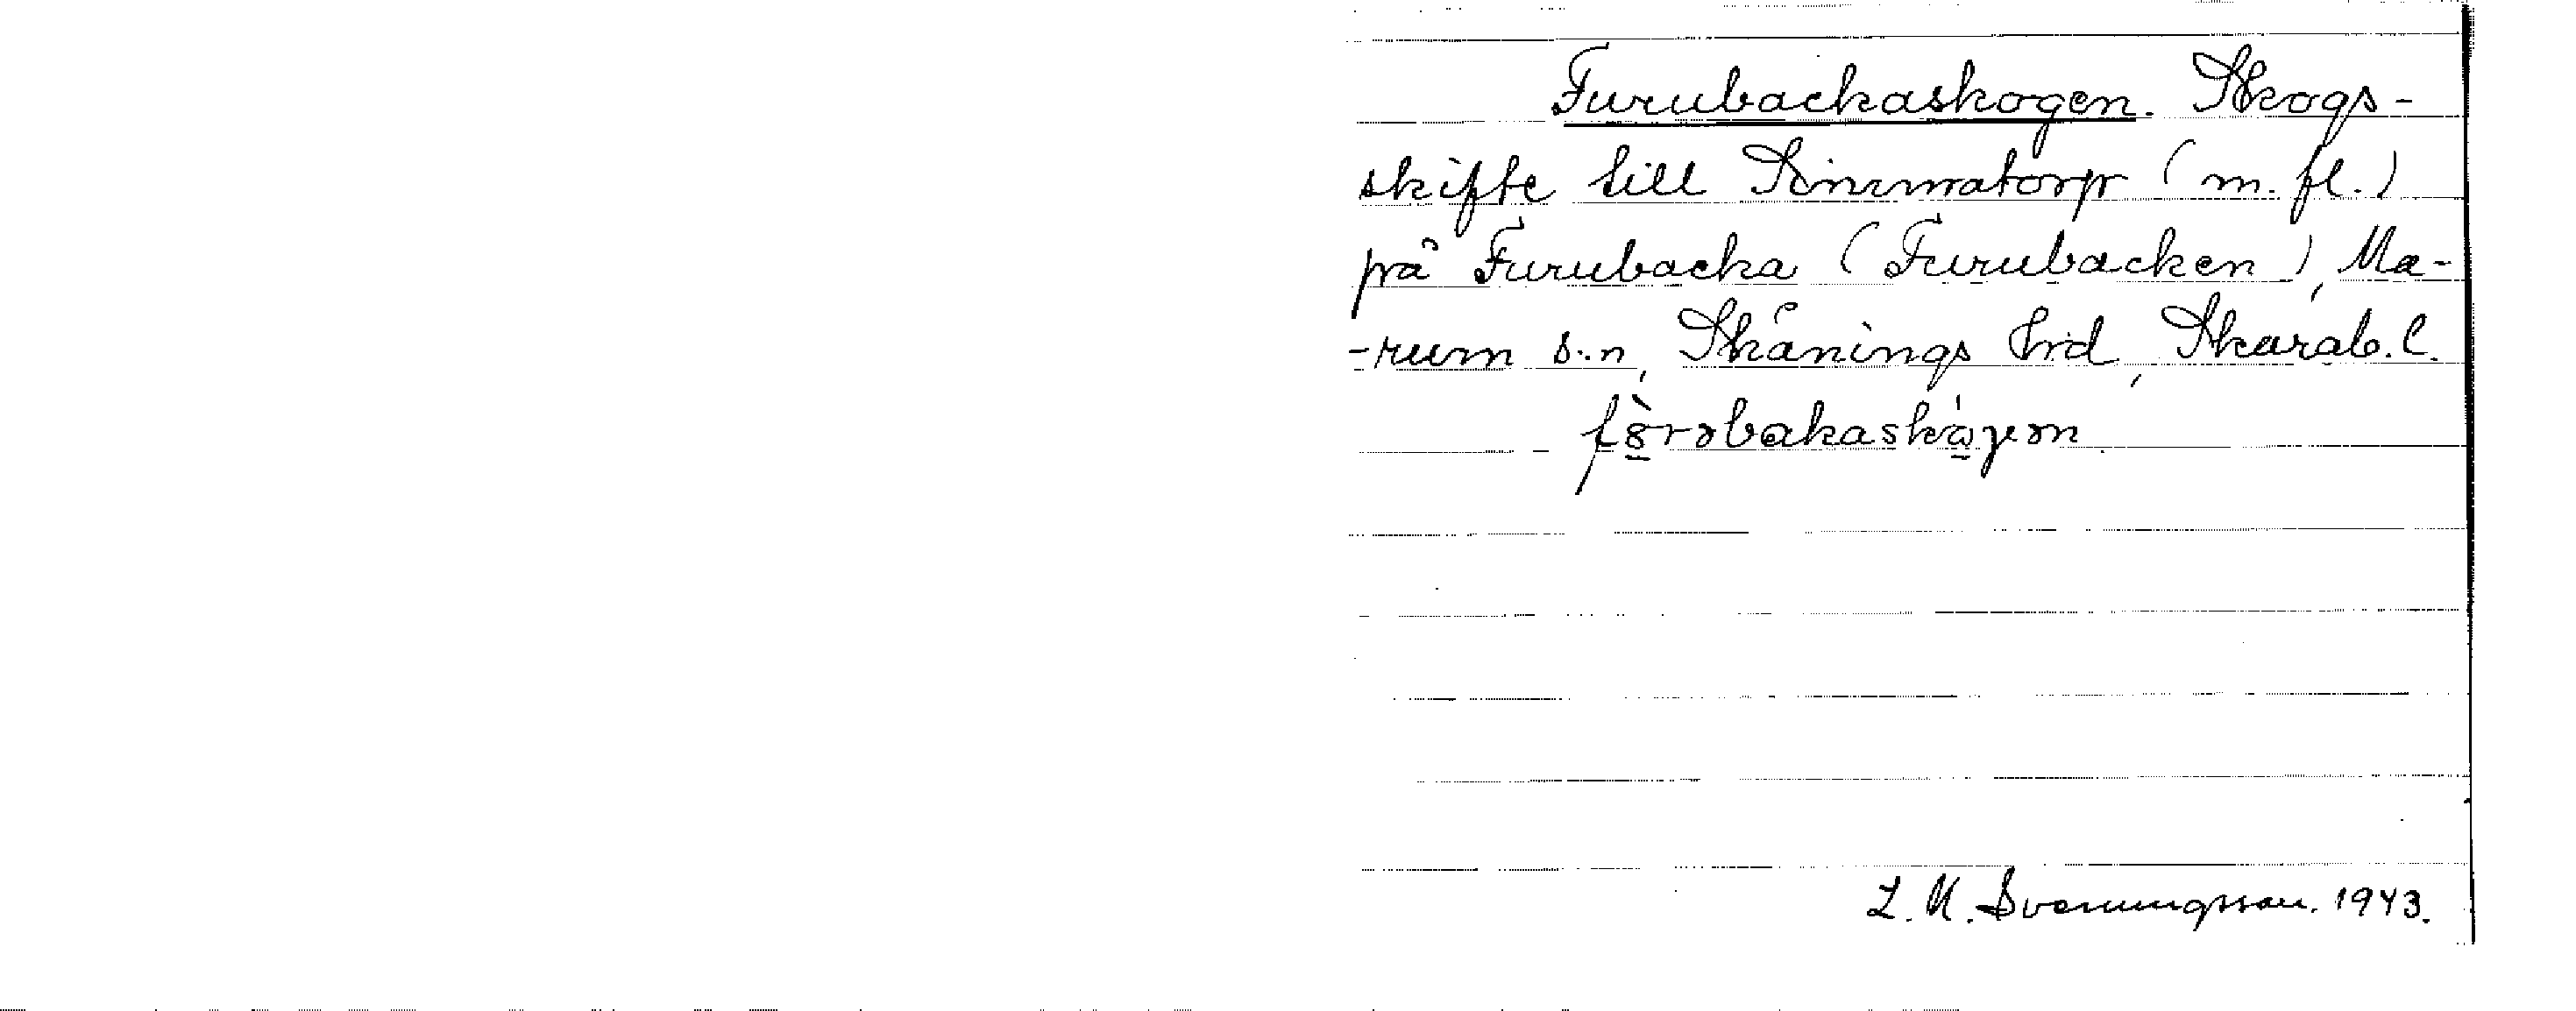 Furubackaskogen. Skogs-
skifte till Simmatorp (m. fl.)
på Furubacka (Furubacken), Ma-
-rum s:n, Skånings Hrd, Skarab. l.
L. M. Svenungsson. 1943.